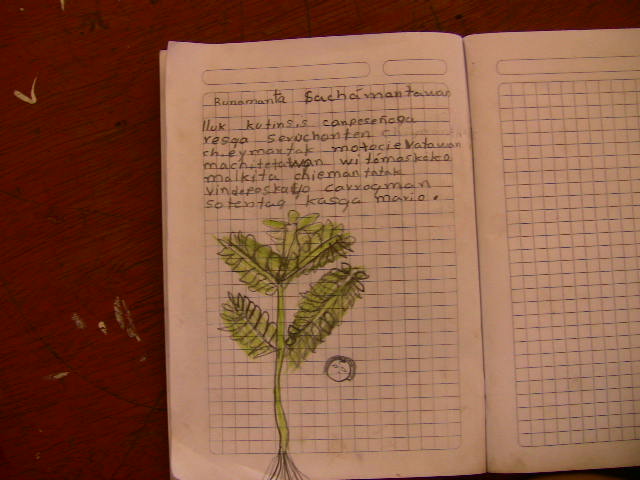 Runamanta Sachamantawan
Iluk kutinsis canpeseñoga
resga seruchanten
cheymantak motocieratawan
machitetawan witomaskako
malkita chiemantatak
vindeposkatio carroqman
sotentag kasga mario.